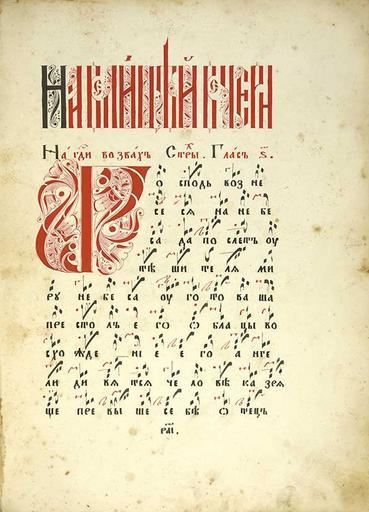 На велицѣй вечерни
На гди возвахъ Стры. Гласъ ѕ.
Го сподь воз не
се сѧ на не бе
са да по слетъ оу
тѣ ши те лѧ ми
ру не бе са оу го то ва ша
пре столъ е го ѡ бла цы во
схо жде ни е е го а нге
ли ди вѧ тсѧ че ло вѣ ка зрѧ
ще пре вы ше се бѣ ѡ тецъ